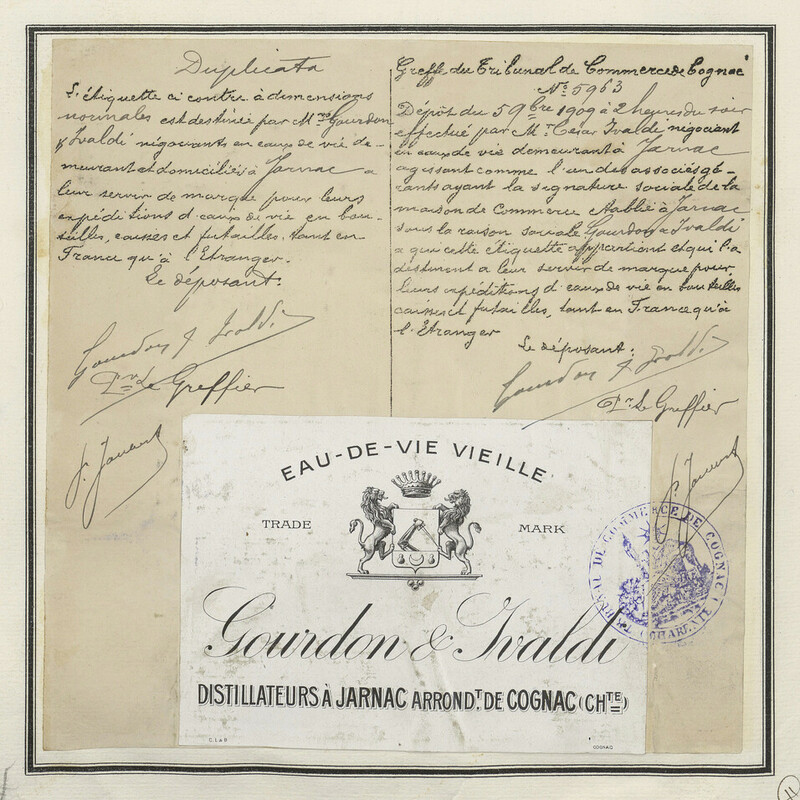 Duplicata
L'étiquette ci contre à dimensions
normales est destinée par Mrs Gourdon
& Ivaldi négociants en eaux de vie de-
meurant et domiciliés à Jarnac a
leur servir de marque pour leurs
expéditions d'eaux de vie en bou-
teilles, caisses et futailles, tant en
France qu'à l'Etranger.
Le déposant.
Gourdon & Ivaldi
Pr Le Greffier
Greffe du Tribunal de Commerce de Cognac
No 5963
Dépôt du 5 9bre 1909 à 2 heures du soir
effectué par Mr César Ivaldi négociant
en eaux de vie demeurant à Jarnac
agissant comme l'un des associés gé-
rants ayant la signature sociale de la
maison de Commerce établie à Jarnac
sous la raison sociale Gourdon & Ivaldi
a qui cette étiquette appartient et qui l'a
destinent a leur servir de marque pour
leurs expéditions d'eaux de vie en bouteilles
caisses et futailles, tant en France qu'à
l'Etranger
Le déposant:
Gourdon & Ivaldi
Pr Le Greffier
EAU-DE-VIE VIEILLE
TRADE MARK
Gourdon & Ivaldi
DISTILLATEURS À JARNAC ARRONDT. DE COGNAC (CHTE)
C. L & B COGNAC
TRIBUNAL DE COMMERCE DE COGNAC
(CHARENTE)
11